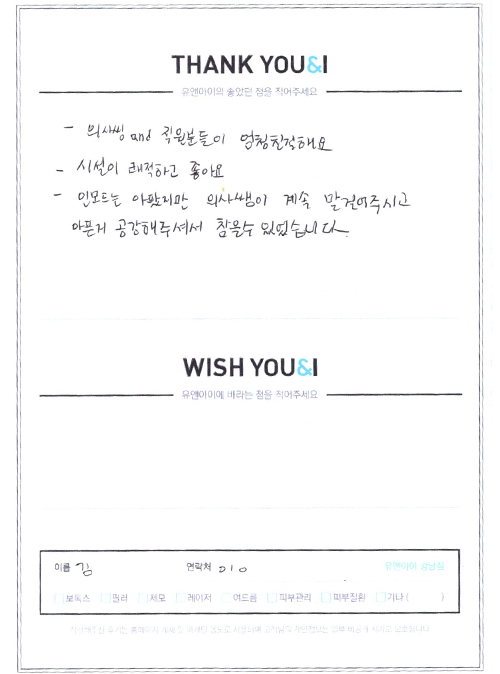 THANK YOU&I
유앤아이의 좋았던 점을 적어주세요
- 의사쌤 and 직원분들이 엄청친절해요
- 시설이 쾌적하고 좋아요
- 인모드는 아팠지만 의사쌤이 계속 말걸어주시고
아픈거 공감해주셔서 참을수 있었습니다.
WISH YOU&I
유앤아이에 바라는 점을 적어주세요
이름 김 연락처 010 유앤아이 강남점
보톡스 필러 제모 레이저 여드름 피부관리 피부질환 기타 ( )